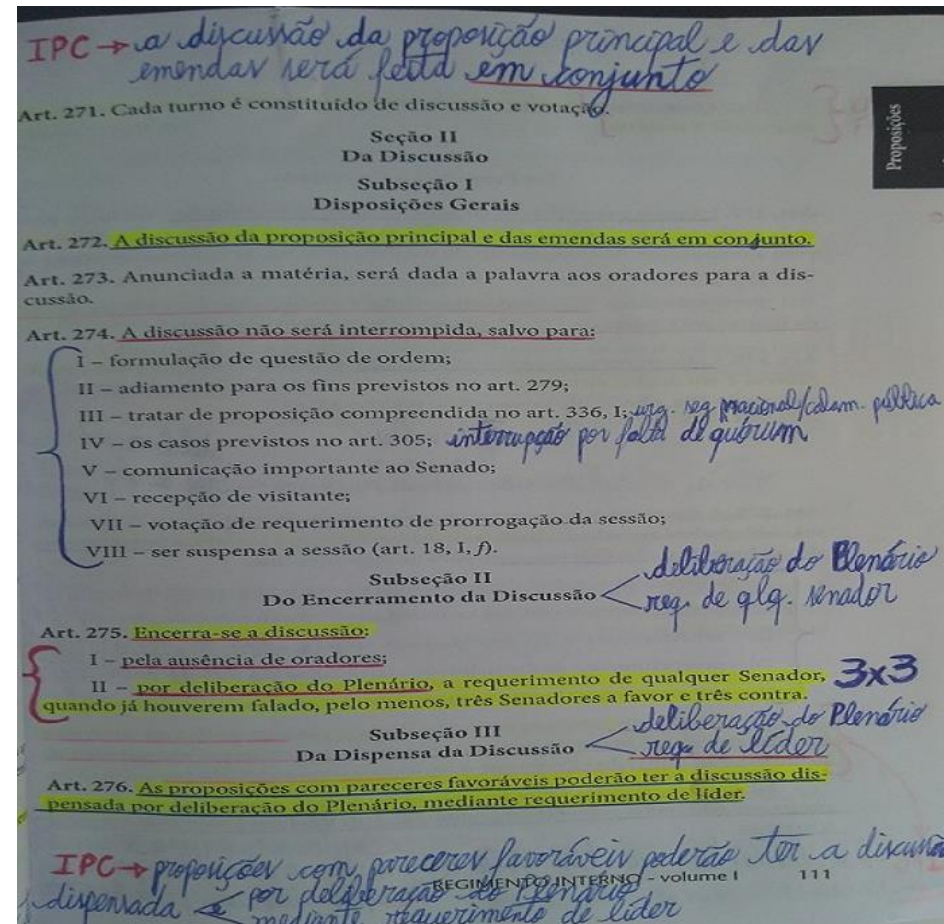 IPC → a discussão da proposição principal e das
emendas será feita em conjunto
Art. 271. Cada turno é constituído de discussão e votação.
Proposições
Seção II
Da Discussão
Subseção I
Disposições Gerais
Art. 272. A discussão da proposição principal e das emendas será em conjunto.
Art. 273. Anunciada a matéria, será dada a palavra aos oradores para a dis-
cussão.
Art. 274. A discussão não será interrompida, salvo para:
I – formulação de questão de ordem;
II – adiamento para os fins previstos no art. 279;
III – tratar de proposição compreendida no art. 336, I; urg. seg nacional/calam. pública
IV – os casos previstos no art. 305; interrupção por falta de quórum
V – comunicação importante ao Senado;
VI – recepção de visitante;
VII – votação de requerimento de prorrogação da sessão;
VIII – ser suspensa a sessão (art. 18, I, f).
Subseção II deliberação do Plenário
Do Encerramento da Discussão req. de qlq. senador
Art. 275. Encerra-se a discussão:
I – pela ausência de oradores;
II – por deliberação do Plenário, a requerimento de qualquer Senador, 3x3
quando já houverem falado, pelo menos, três Senadores a favor e três contra.
Subseção III deliberação do Plenário
Da Dispensa da Discussão req. de líder
Art. 276. As proposições com pareceres favoráveis poderão ter a discussão dis-
pensada por deliberação do Plenário, mediante requerimento de líder.
IPC → proposições com pareceres favoráveis poderão ter a discussão
dispensada por deliberação do Plenário
mediante requerimento de líder
REGIMENTO INTERNO - volume I 111